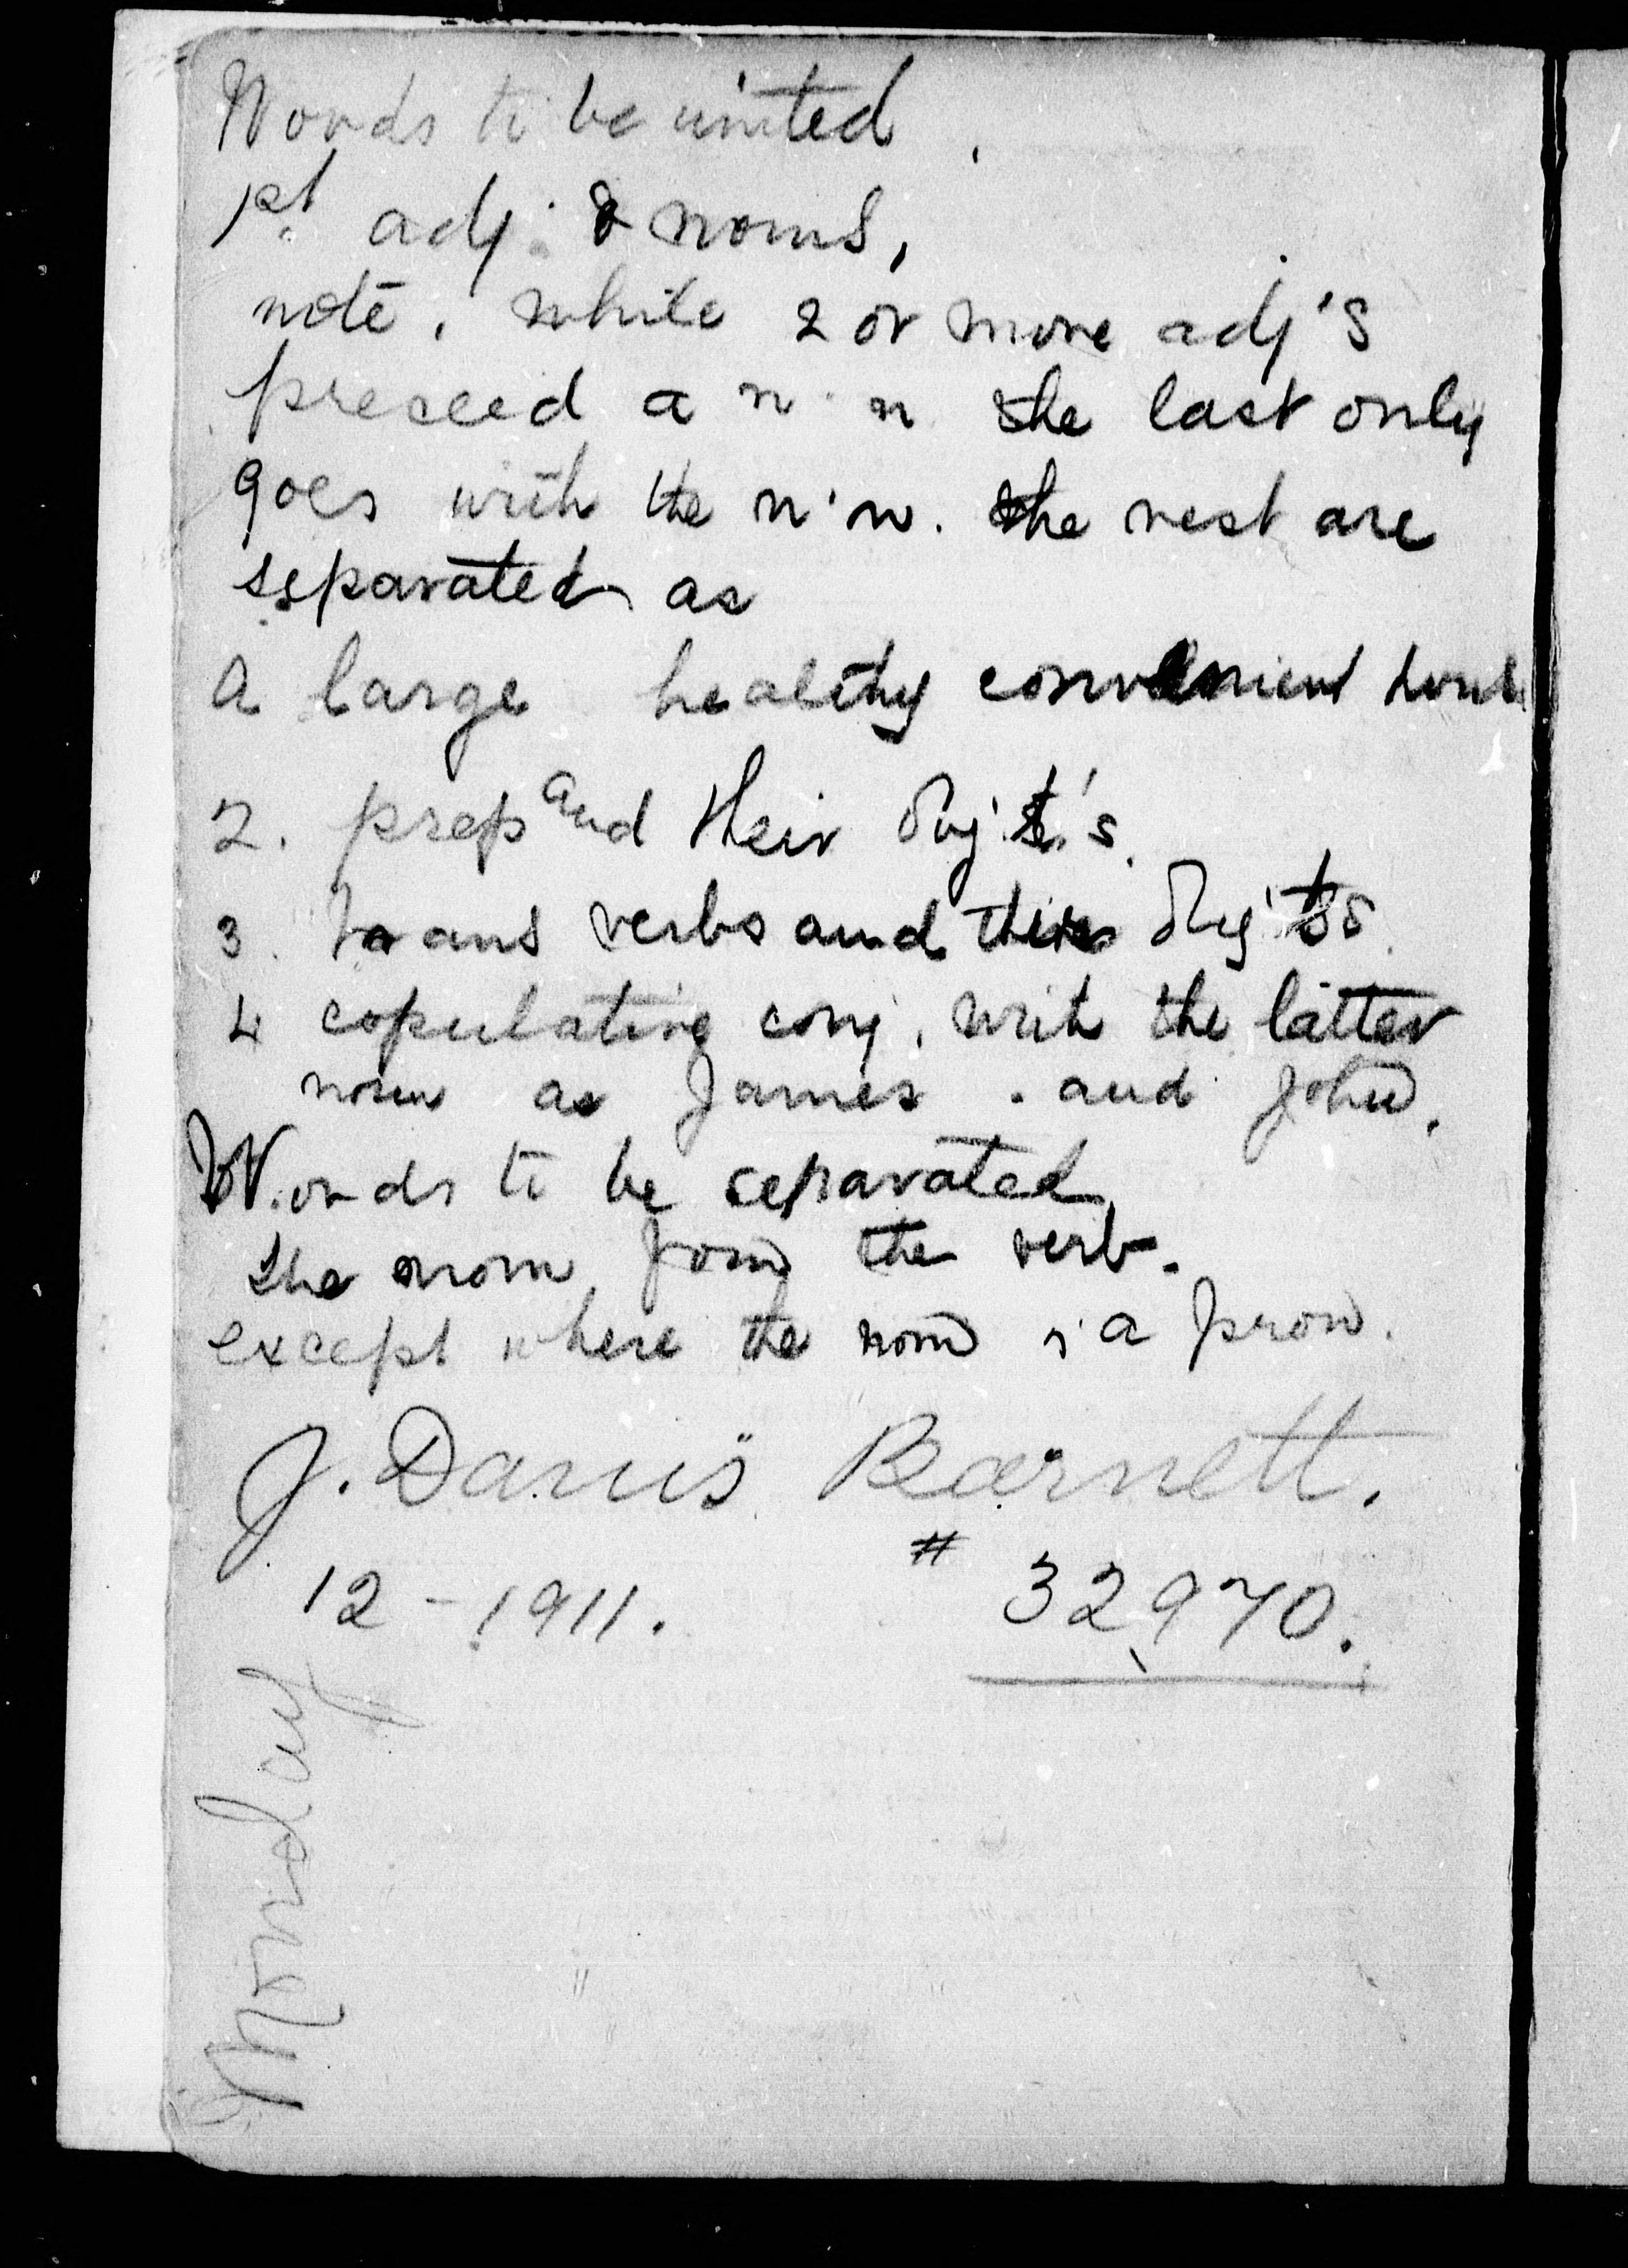 Words to be united.
1st. adj. & nouns,
note. while 2 or more adj's
preceed a n n the last only
goes with the n'n. the rest are
separated as
a large healthy convenient house
2. prep and their obj't's.
3. trans verbs and their obj'ts.
4 copulative conj. with the latter
noun as James. and John.
Words to be separated
the nom from the verb.
except where the nom is a pron.
J. Davis Barnett.
12-1911. # 32970.
Monday